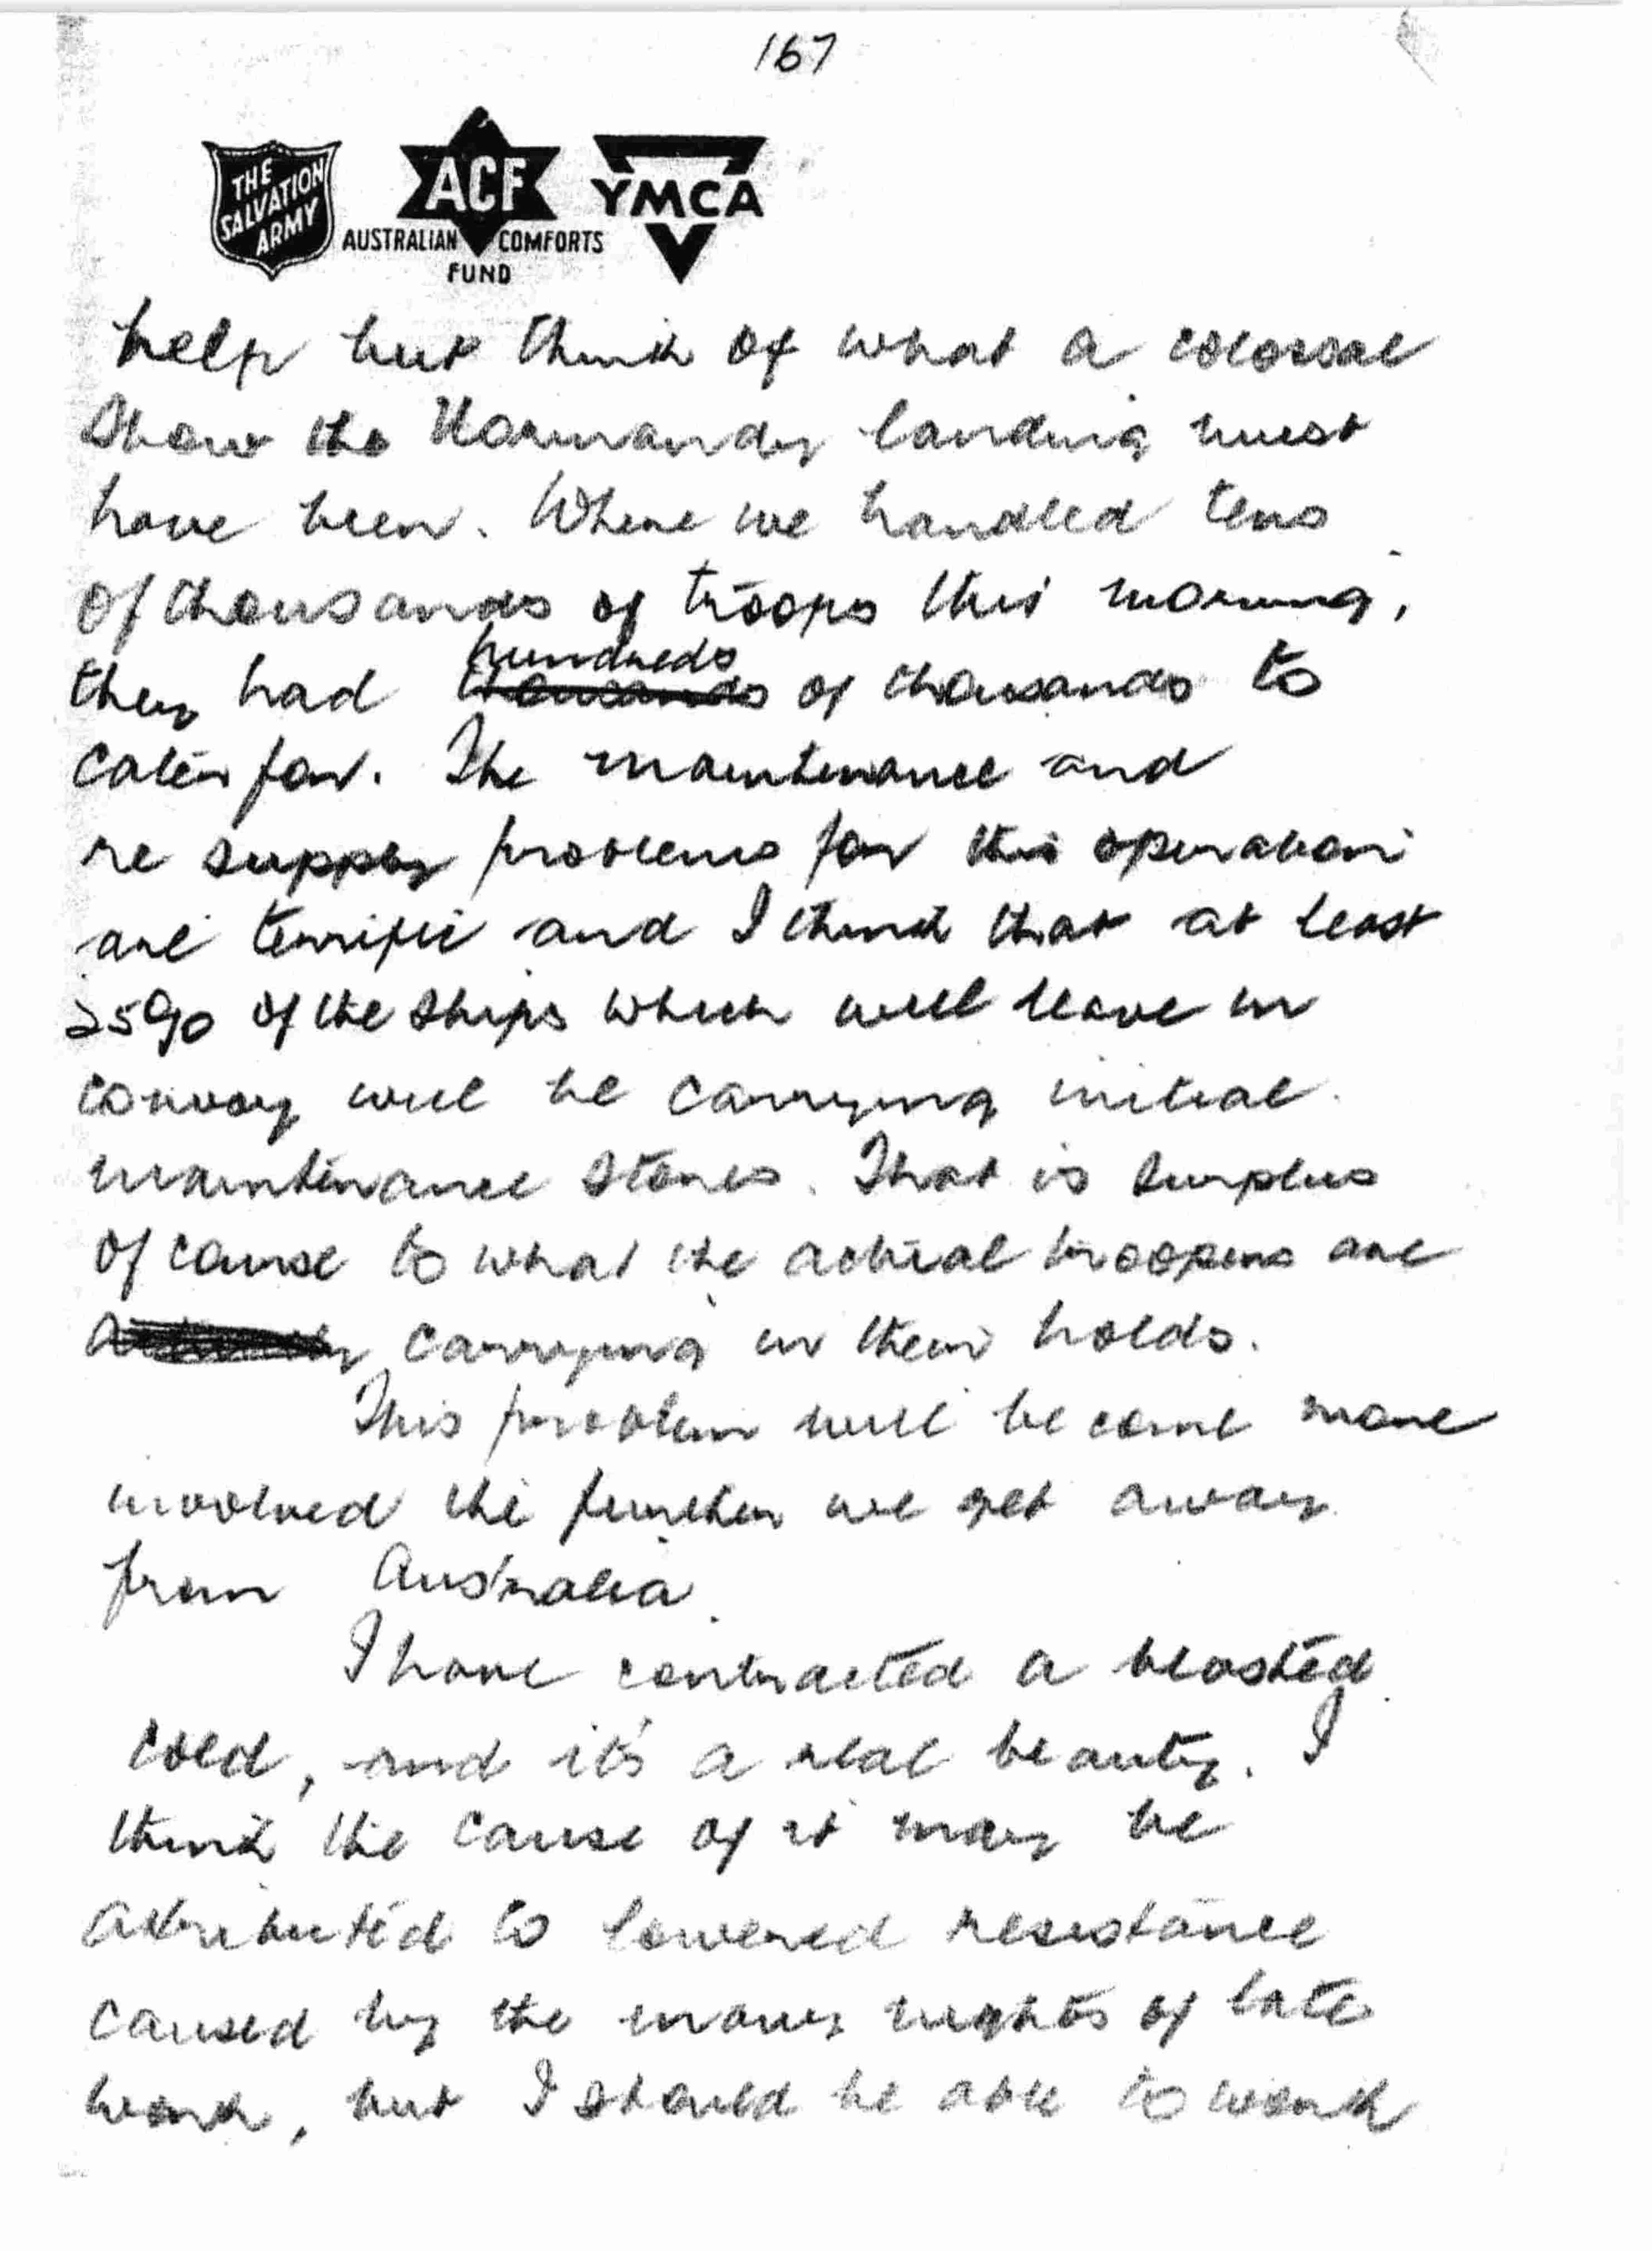 167
THE SALVATION ARMY
ACF
AUSTRALIAN COMFORTS FUND
YMCA
help but think of what a colossal
show the Normandy landing must
have been. Where we handled tens
of thousands of troops this morning,
they had hundreds thousands of thousands to
cater for. The maintenance and
re supply problems for this operation
are terrific and I think that at least
25% of the ships which will leave in
convoy will be carrying initial
maintenance stores. That is surplus
of cause to what the actual troopers are
carrying in their holds.
This problem will be come more
involved the further we get away
from Australia.
I have contracted a blasted
cold, and it's a real beauty. I
think the cause of it may be
attributed to lowered resistance
caused by the many nights of late
work, but I should be able to work